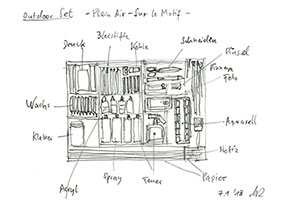 Outdoor Set - Plein Air - Sur le Motif -
Bleistifte
Druck
Kohle
Schneiden
Pinsel
Foto
Wachs
Kleber
Aquarell
Notiz
Acryl
Spray
Feuer
Papier
7.1.'18